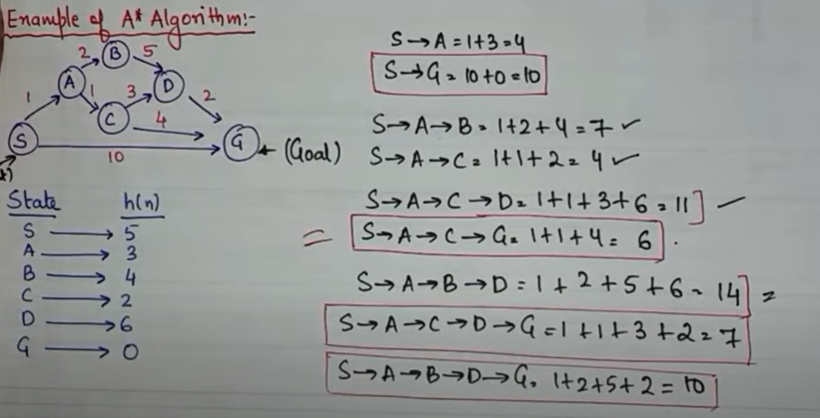 Example of A* Algorithm:-
2 B 5
A D
1 1 3 2
C 4
S G ← (Goal)
10
State h(n)
S → 5
A → 3
B → 4
C → 2
D → 6
G → 0
S→A = 1+3=4
S→G = 10+0=10
S→A→B = 1+2+4=7 ✓
S→A→C = 1+1+2=4 ✓
S→A→C→D = 1+1+3+6=11] –
= S→A→C→G = 1+1+4= 6 .
S→A→B→D = 1+2+5+6=14] =
S→A→C→D→G = 1+1+3+2=7
S→A→B→D→G = 1+2+5+2=10